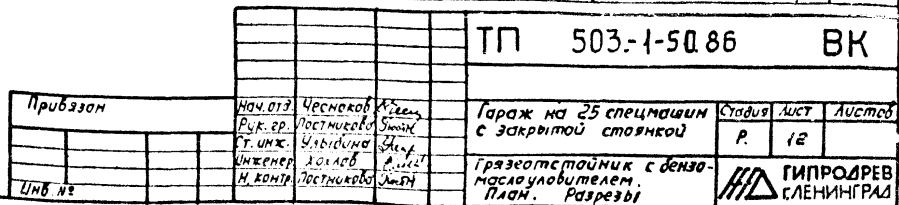 ТП 503.-1-50.86 ВК
Привязан
Инв №
Нач. отд. Чесноков
Рук. гр. Постникова
Ст. инж. Улыбина
Инженер Хохлов
Н. контр. Постникова
Гараж на 25 спецмашин
с закрытой стоянкой
Стадия Лист Листов
Р. 12
Грязеотстойник с бензо-
маслоуловителем.
План. Разрезы
ГИПРОДРЕВ
г.ЛЕНИНГРАД